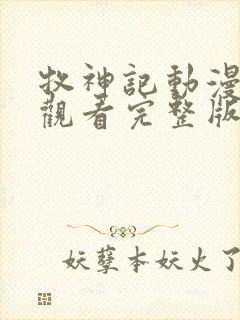 牧神記動漫
觀看完整版
妖孽本妖火了